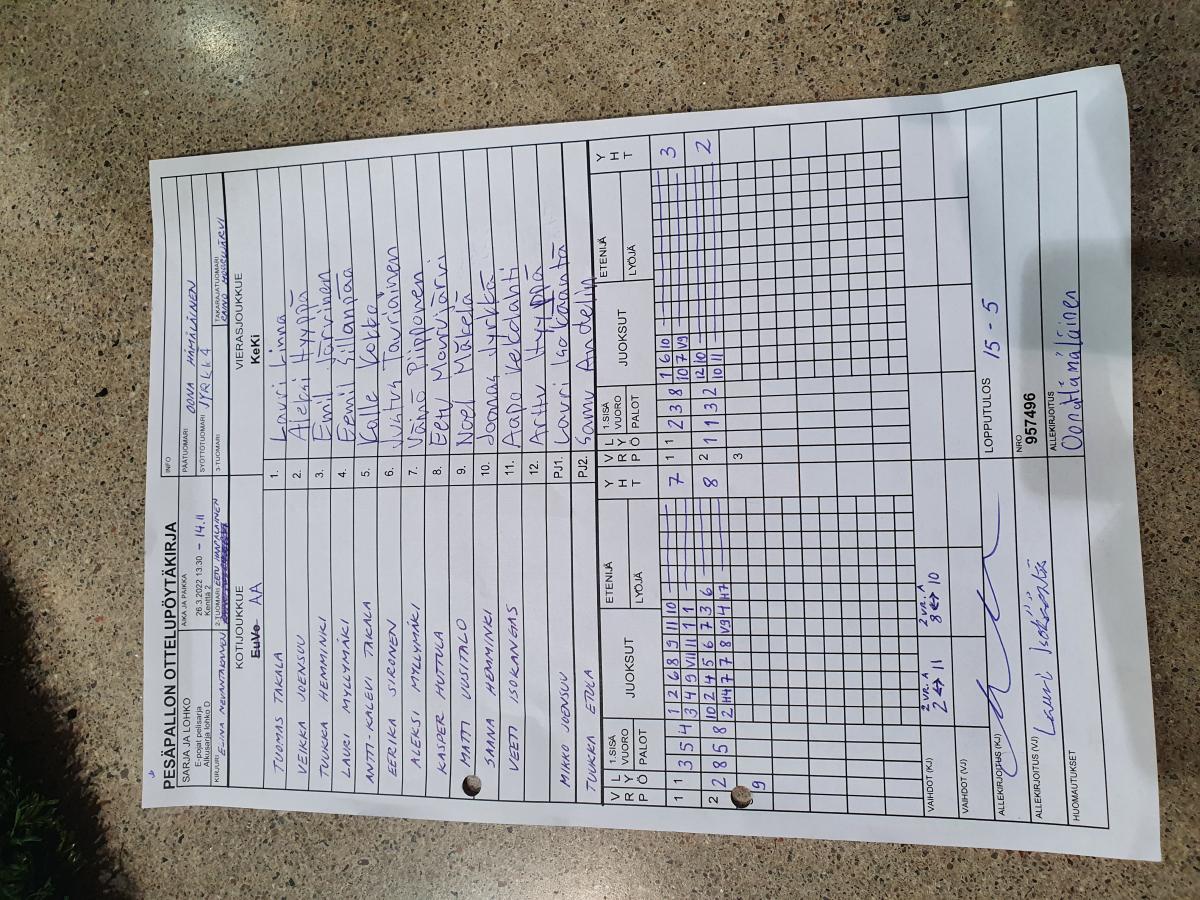 PESÄPALLON OTTELUPÖYTÄKIRJA
SARJA JA LOHKO
E-pojat pelisarja
Alkusarja lohko D
AIKA JA PAIKKA
26.3.2022 13:30 - 14.11
Kenttä 2
INFO
PÄÄTUOMARI OONA HÄMÄLÄINEN
SYÖTTÖTUOMARI
KIRJURI
2-TUOMARI EETU
3-TUOMARI
TAKARAJATUOMARI
KOTIJOUKKUE
EuVo AA
VIERASJOUKKUE
KeKi
TUOMAS TAKALA 1. Lauri Linna
VEIKKA JOENSUU 2. Aleksi Hyyppä
TUUKKA HEMMINKI 3. Emil Järvinen
LAURI MYLLYMÄKI 4. Eemil Sillanpää
ANTTI-KALEVI TAKALA 5. Kalle Kokko
EERIKA SIRONEN 6. Tauriainen
ALEKSI MYLLYMÄKI 7. Väinö Piipponen
KASPER HUTTULA 8. Eetu Monnijärvi
MATTI UUSITALO 9. Noel Mäkelä
SAANA HEMMINKI 10. Joonas Jyrkkä
VEETI ISOKANGAS 11. Aapo Keldalahti
12. Arttu Hyyppä
MIKKO JOENSUU PJ1. Lauri Isokääntä
TUUKKA ETULA PJ2. Samu Andelin
V R P L Y Ö 1.SISÄ VUORO PALOT JUOKSUT ETENIJÄ LYÖJÄ Y H T V R P L Y Ö 1.SISÄ VUORO PALOT JUOKSUT ETENIJÄ LYÖJÄ Y H T
1 1 3 5 4 1 2 6 8 9 11 10 7 1 1 2 3 8 1 6 10 3
3 4 9 V11 11 1 1 10 7 V9
2 2 8 5 8 10 2 4 5 6 7 3 6 8 2 1 1 3 2 12 10 2
2 H4 7 7 8 V9 4 H7 10 11
9 3
VAIHDOT (KJ) 2 VR. A 2 ↔ 11 2 VR. A 8 ↔ 10
VAIHDOT (VJ)
ALLEKIRJOITUS (KJ)
LOPPUTULOS 15 - 5
ALLEKIRJOITUS (VJ) Lauri Isokääntä
NRO
957496
HUOMAUTUKSET
ALLEKIRJOITUS
Oona Hämäläinen